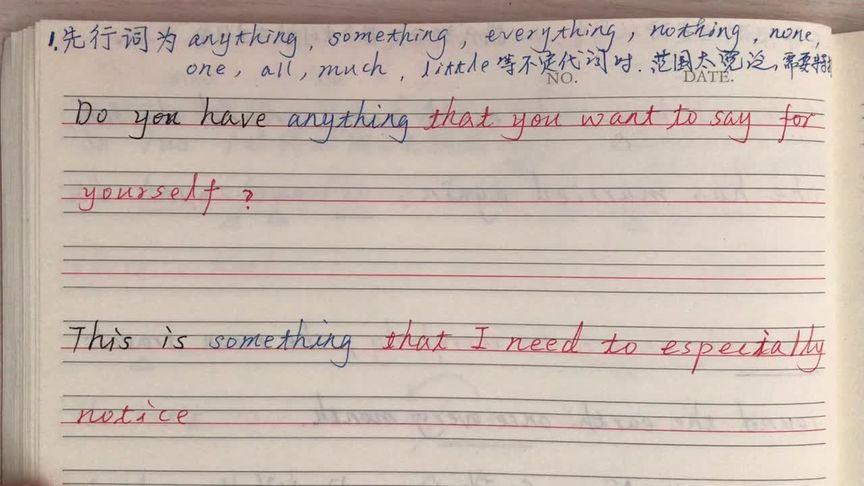 1.先行词为 anything, something, everything, nothing, none,
one, all, much, little 等不定代词时. 范围太宽泛, 需要特
NO. DATE.
Do you have anything that you want to say for
yourself?
This is something that I need to especially
notice